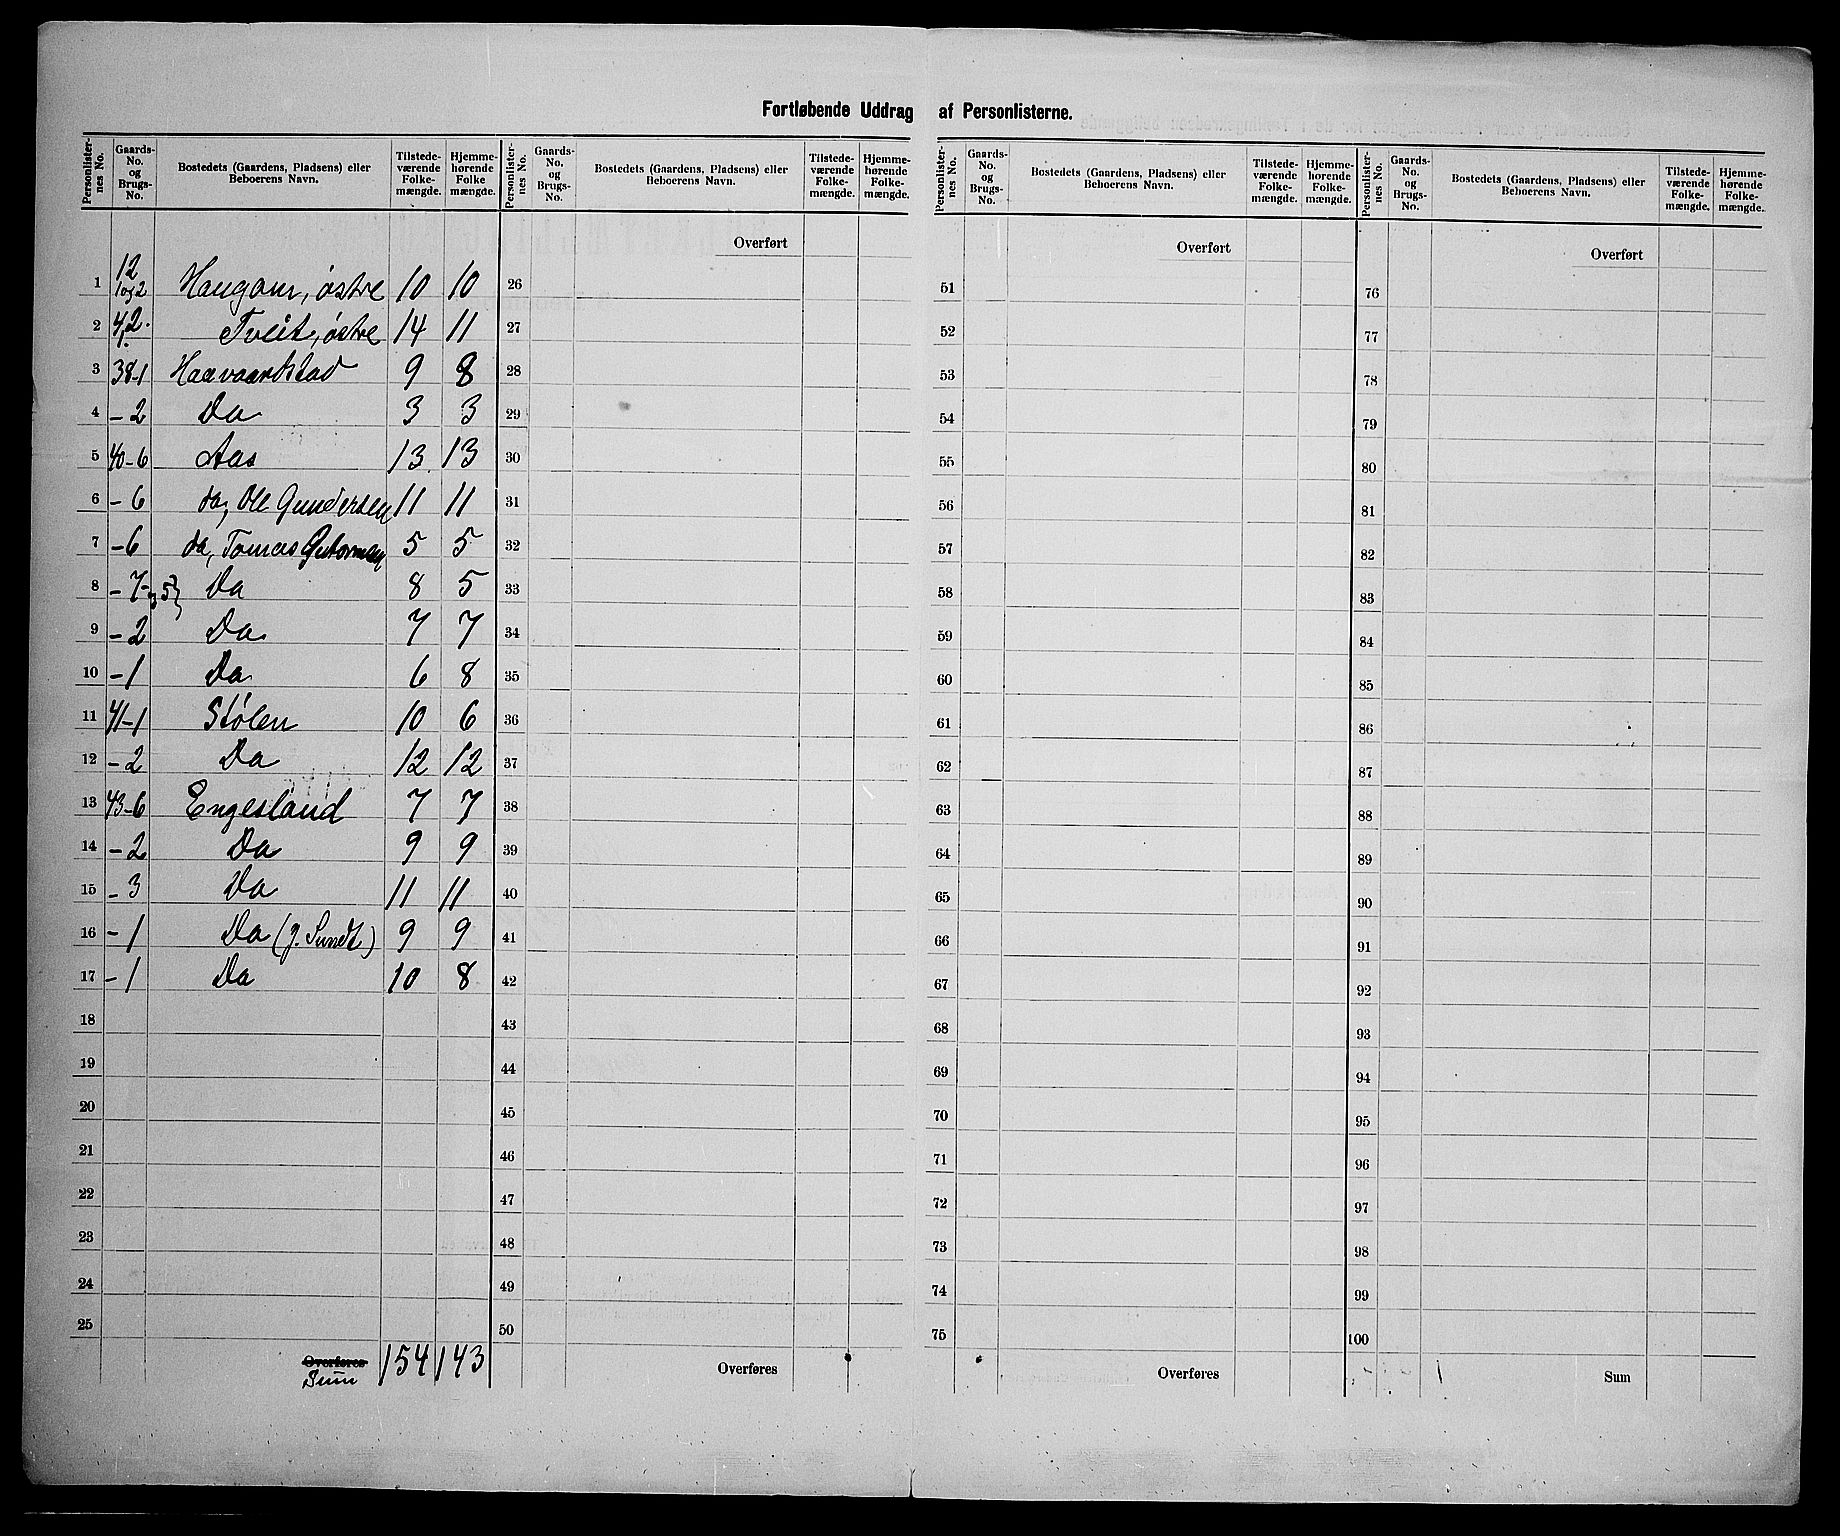 Fortløbende Uddrag af Personlisterne.
Personlister-nes No. Gaards-No. og Brugs-No. Bostedets (Gaardens, Pladsens) eller Beboerens Navn. Tilstede-værende Folke-mængde. Hjemme-hørende Folke mængde.
1 12 1 og 2 Haugom, østre 10 10
2 4,2. Tveit, østre 14 11
3 38-1 Haavaarstad 9 8
4 - 2 Do 3 3
5 40-6 Aas 13 13
6 - 6 do, Ole Gundersen 11 11
7 - 6 do, Tomas 5 5
8 - 7 og 5 Do 8 5
9 - 2 Do 7 7
10 - 1 Do 6 8
11 41-1 Stølen 10 6
12 - 2 Do 12 12
13 43-6 Engesland 7 7
14 - 2 Do 9 9
15 - 3 Do 11 11
16 - 1 Do (J. Sundt) 9 9
17 - 1 Do 10 8
18
19
20
21
22
23
24
25
Overføres
Sum 154 143
Personlister-nes No. Gaards-No. og Brugs-No. Bostedets (Gaardens, Pladsens) eller Beboerens Navn. Tilstede-værende Folke-mængde. Hjemme-hørende Folke-mængde.
Overført
26
27
28
29
30
31
32
33
34
35
36
37
38
39
40
41
42
43
44
45
46
47
48
49
50
Overføres
Personlister-nes No. Gaards-No. og Brugs-No. Bostedets (Gaardens, Pladsens) eller Beboerens Navn. Tilstede-værende Folke-mængde. Hjemme-hørende Folke-mængde.
Overført
51
52
53
54
55
56
57
58
59
60
61
62
63
64
65
66
67
68
69
70
71
72
73
74
75
Overføres
Personlister-nes No. Gaards-No. og Brugs-No. Bostedets (Gaardens, Pladsens) eller Beboerens Navn. Tilstede-værende Folke-mængde. Hjemme-hørende Folke-mængde.
Overført
76
77
78
79
80
81
82
83
84
85
86
87
88
89
90
91
92
93
94
95
96
97
98
99
100
Sum